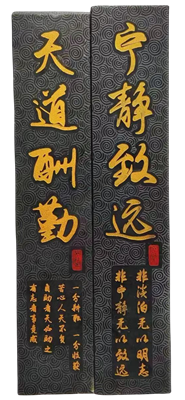 宁静致远
非淡泊无以明志
非宁静无以致远
天道酬勤
一分耕耘 一分收获
苦心人天不负
自助者天必助之
有志者事竟成